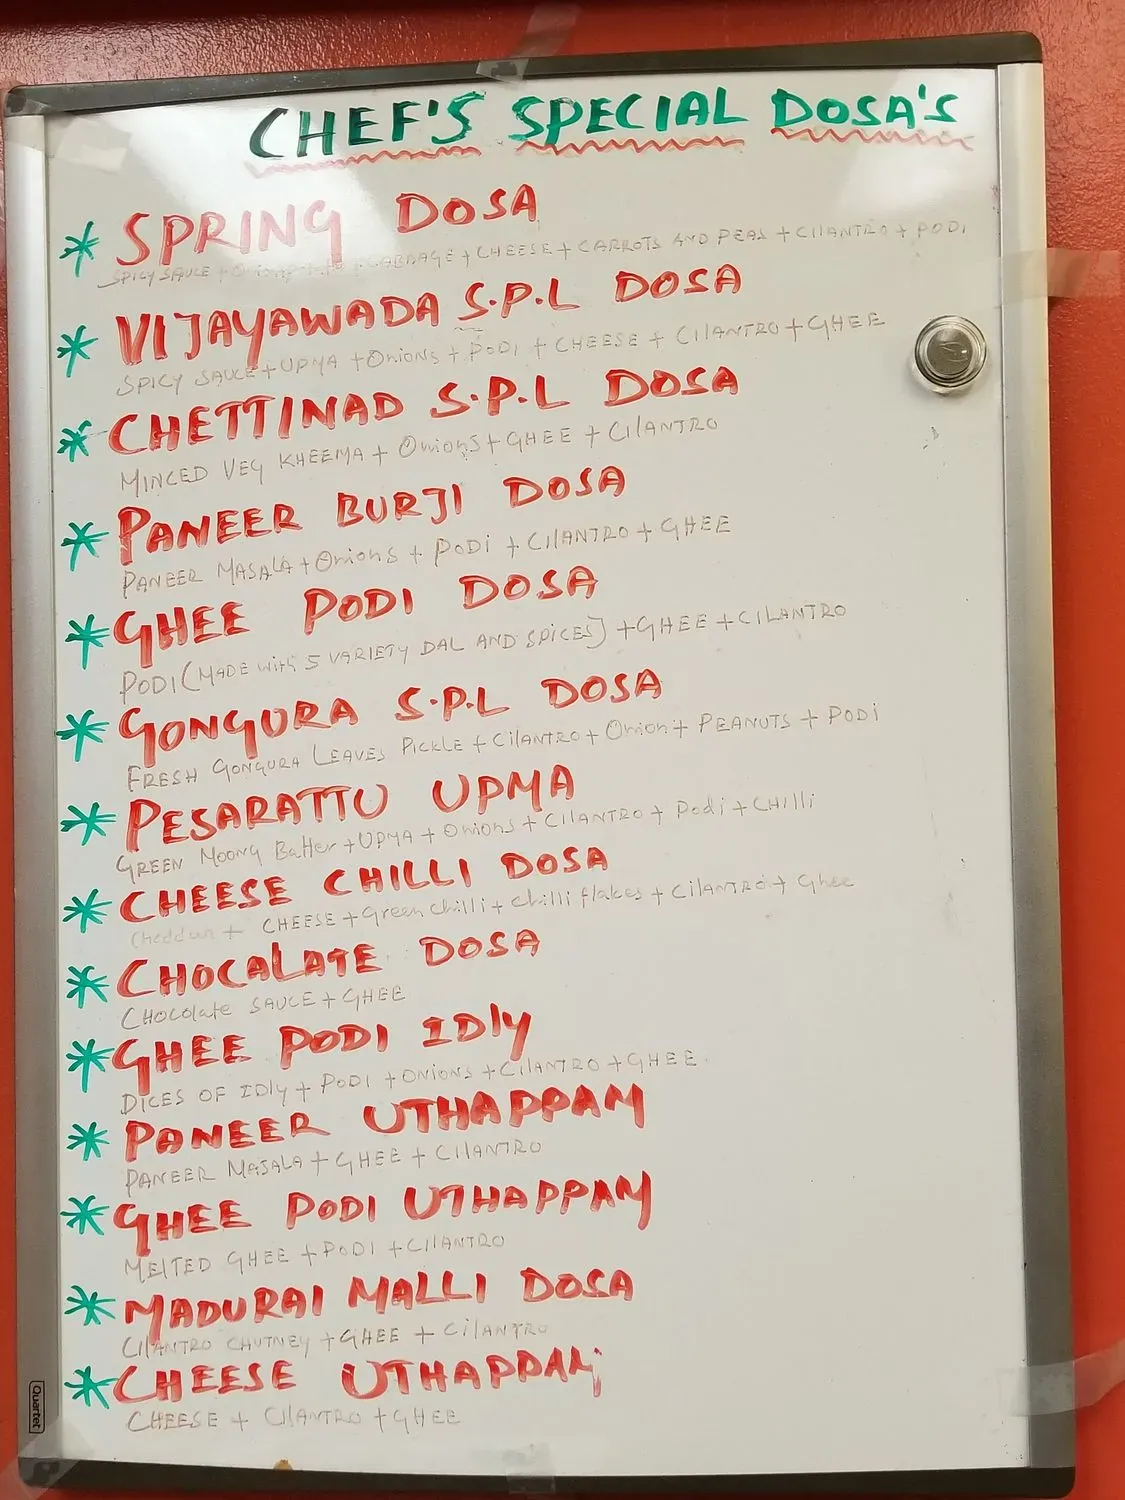 CHEF'S SPECIAL DOSA'S
* SPRING DOSA
SPICY SAUCE + CABBAGE + CHEESE + CARROTS AND PEAS + CIlANTRO + PODI
* VIJAYAWADA S.P.L DOSA
SPICY SAUCE + UPMA + Onions + PODI + CHEESE + CIlANTRO + GHEE
* CHETTINAD S.P.L DOSA
MINCED VEG KHEEMA + Onions + GHEE + CIlANTRO
* PANEER BURJI DOSA
PANEER MASALA + Onions + PODI + CIlANTRO + GHEE
* GHEE PODI DOSA
PODI (MADE with 5 VARIETY DAL AND SPICES) + GHEE + CILANTRO
* GONGURA S.P.L DOSA
FRESH GONGURA LEAVES PICKLE + CilANTRO + Onion + PEANUTS + PODI
* PESARATTU UPMA
GREEN MOONG Batter + UPMA + Onions + CILANTRO + Podi + CHIlli
* CHEESE CHILLI DOSA
Cheddar + CHEESE + Green chilli + chilli flakes + CilANTRO + Ghee
* CHOCALATE DOSA
CHOColate SAUCE + GHEE
* GHEE PODI IDly
DICES OF IDly + PODI + ONIONS + CIlANTRO + GHEE
* PANEER UTHAPPAM
PANEER MASALA + GHEE + CIlANTRO
* GHEE PODI UTHAPPAM
MElTED GHEE + PODI + CIlANTRO
* MADURAI MALLI DOSA
CIlANTRO CHUTNEY + GHEE + CilANTRO
* CHEESE UTHAPPAM
CHEESE + CIlANTRO + GHEE
Quartet